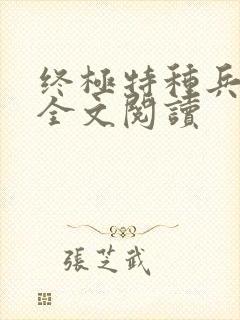 终極特種兵
全文閱讀
張芝武